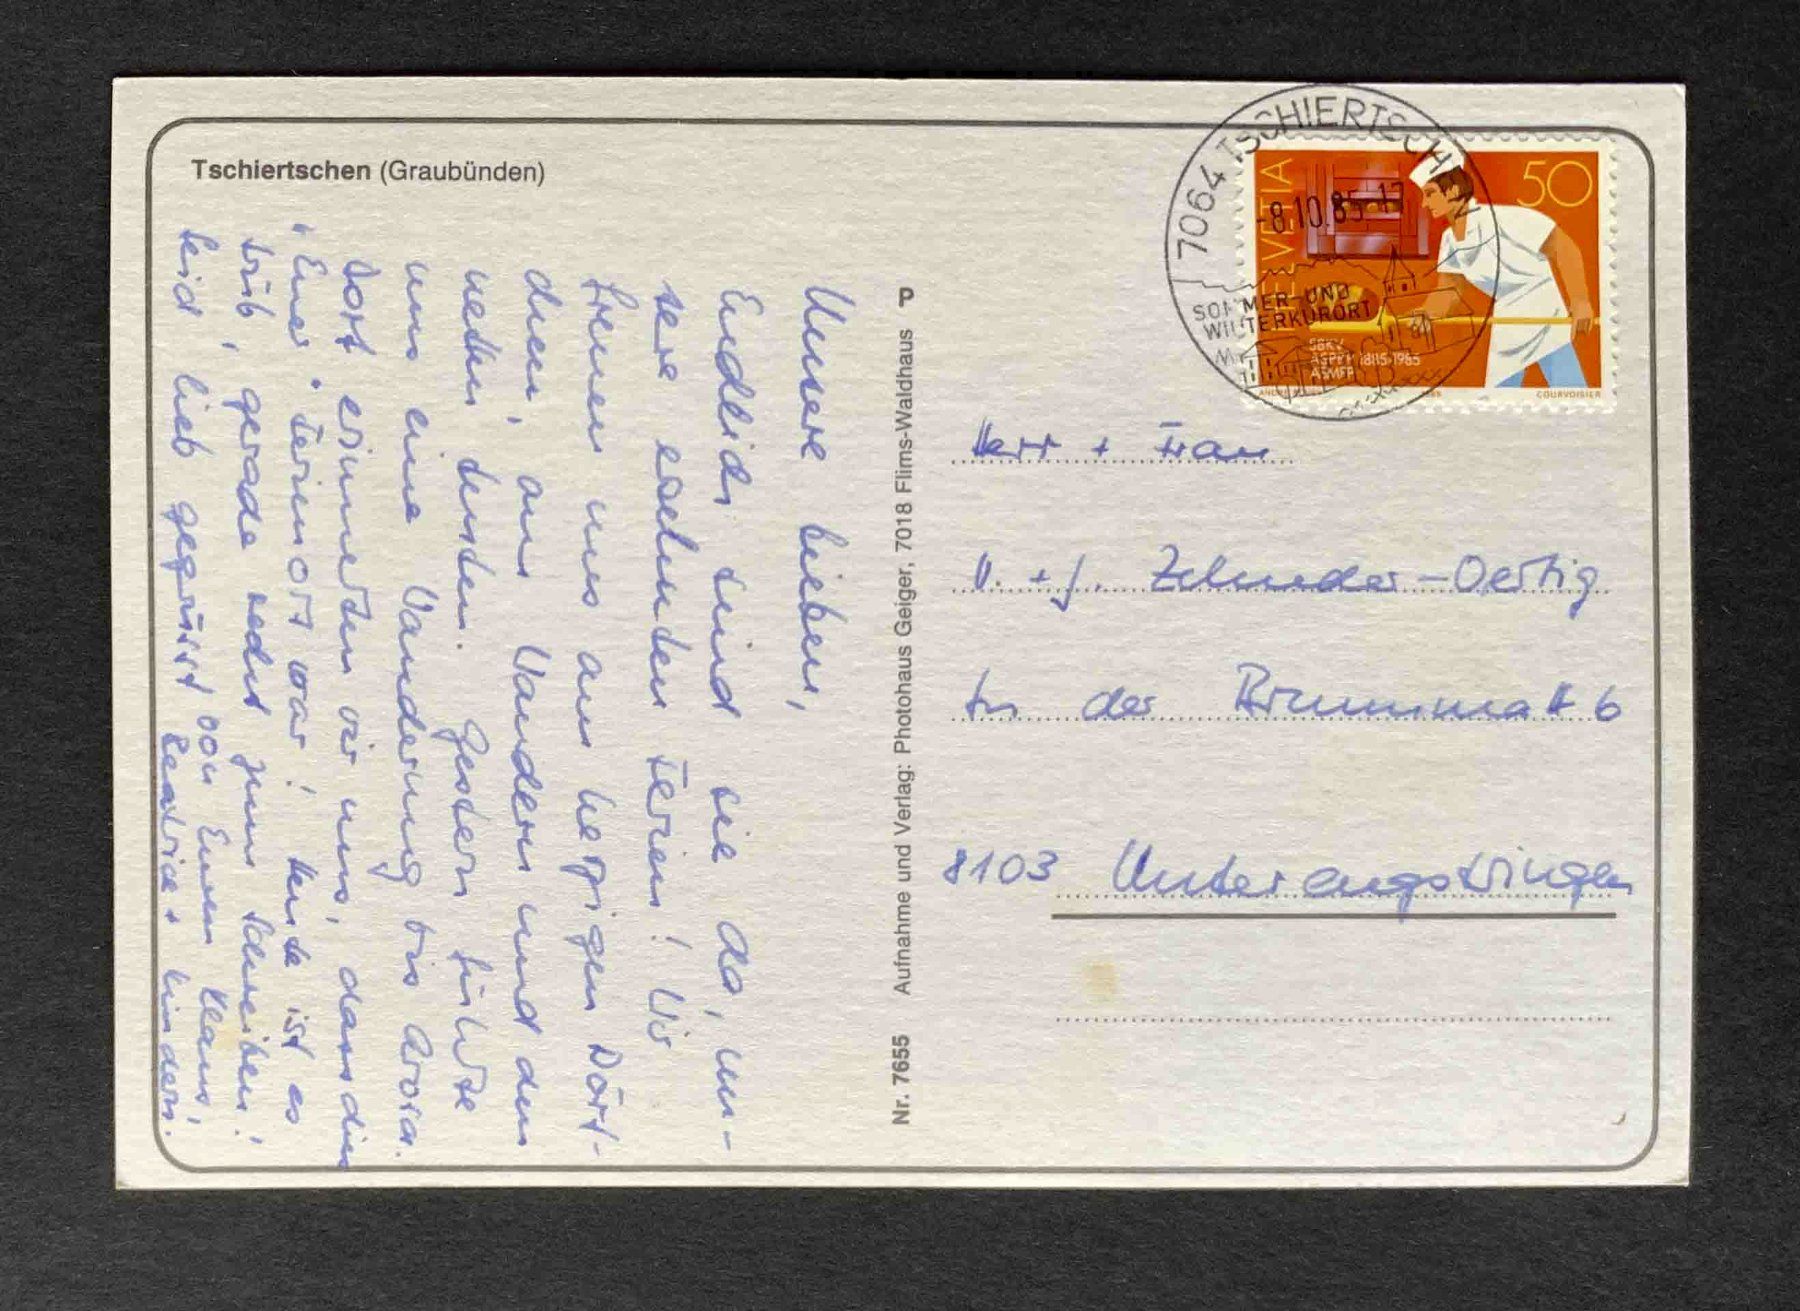 Tschiertschen (Graubünden)
Unsere lieben,
Endlich sind sie da, un-
sere ersehnten Ferien! Wir
freuen uns am herzigen Dörf-
chen, am Wandern und den
netten Leuten. Gestern führte
uns eine Wanderung bis Arosa.
Dort erinnerten wir uns, dass dies
"Euer" Ferienort war! Heute ist es
trüb, gerade recht zum Schreiben!
Seid lieb gegrüsst von Euren Klaus,
Beatrice + Kindern.
Nr. 7655 Aufnahme und Verlag: Photohaus Geiger, 7018 Flims-Waldhaus P
7064 TSCHIERTSCHEN
-8.10.85-17
SOMMER- UND
WINTERKURORT
HELVETIA
50
SBKV
ASPBP 1885-1985
ASMPP
COURVOISIER
Herr + Frau
U. + J. Zehnder-Oertig
In der Brunnmatt 6
8103 Unterengstringen